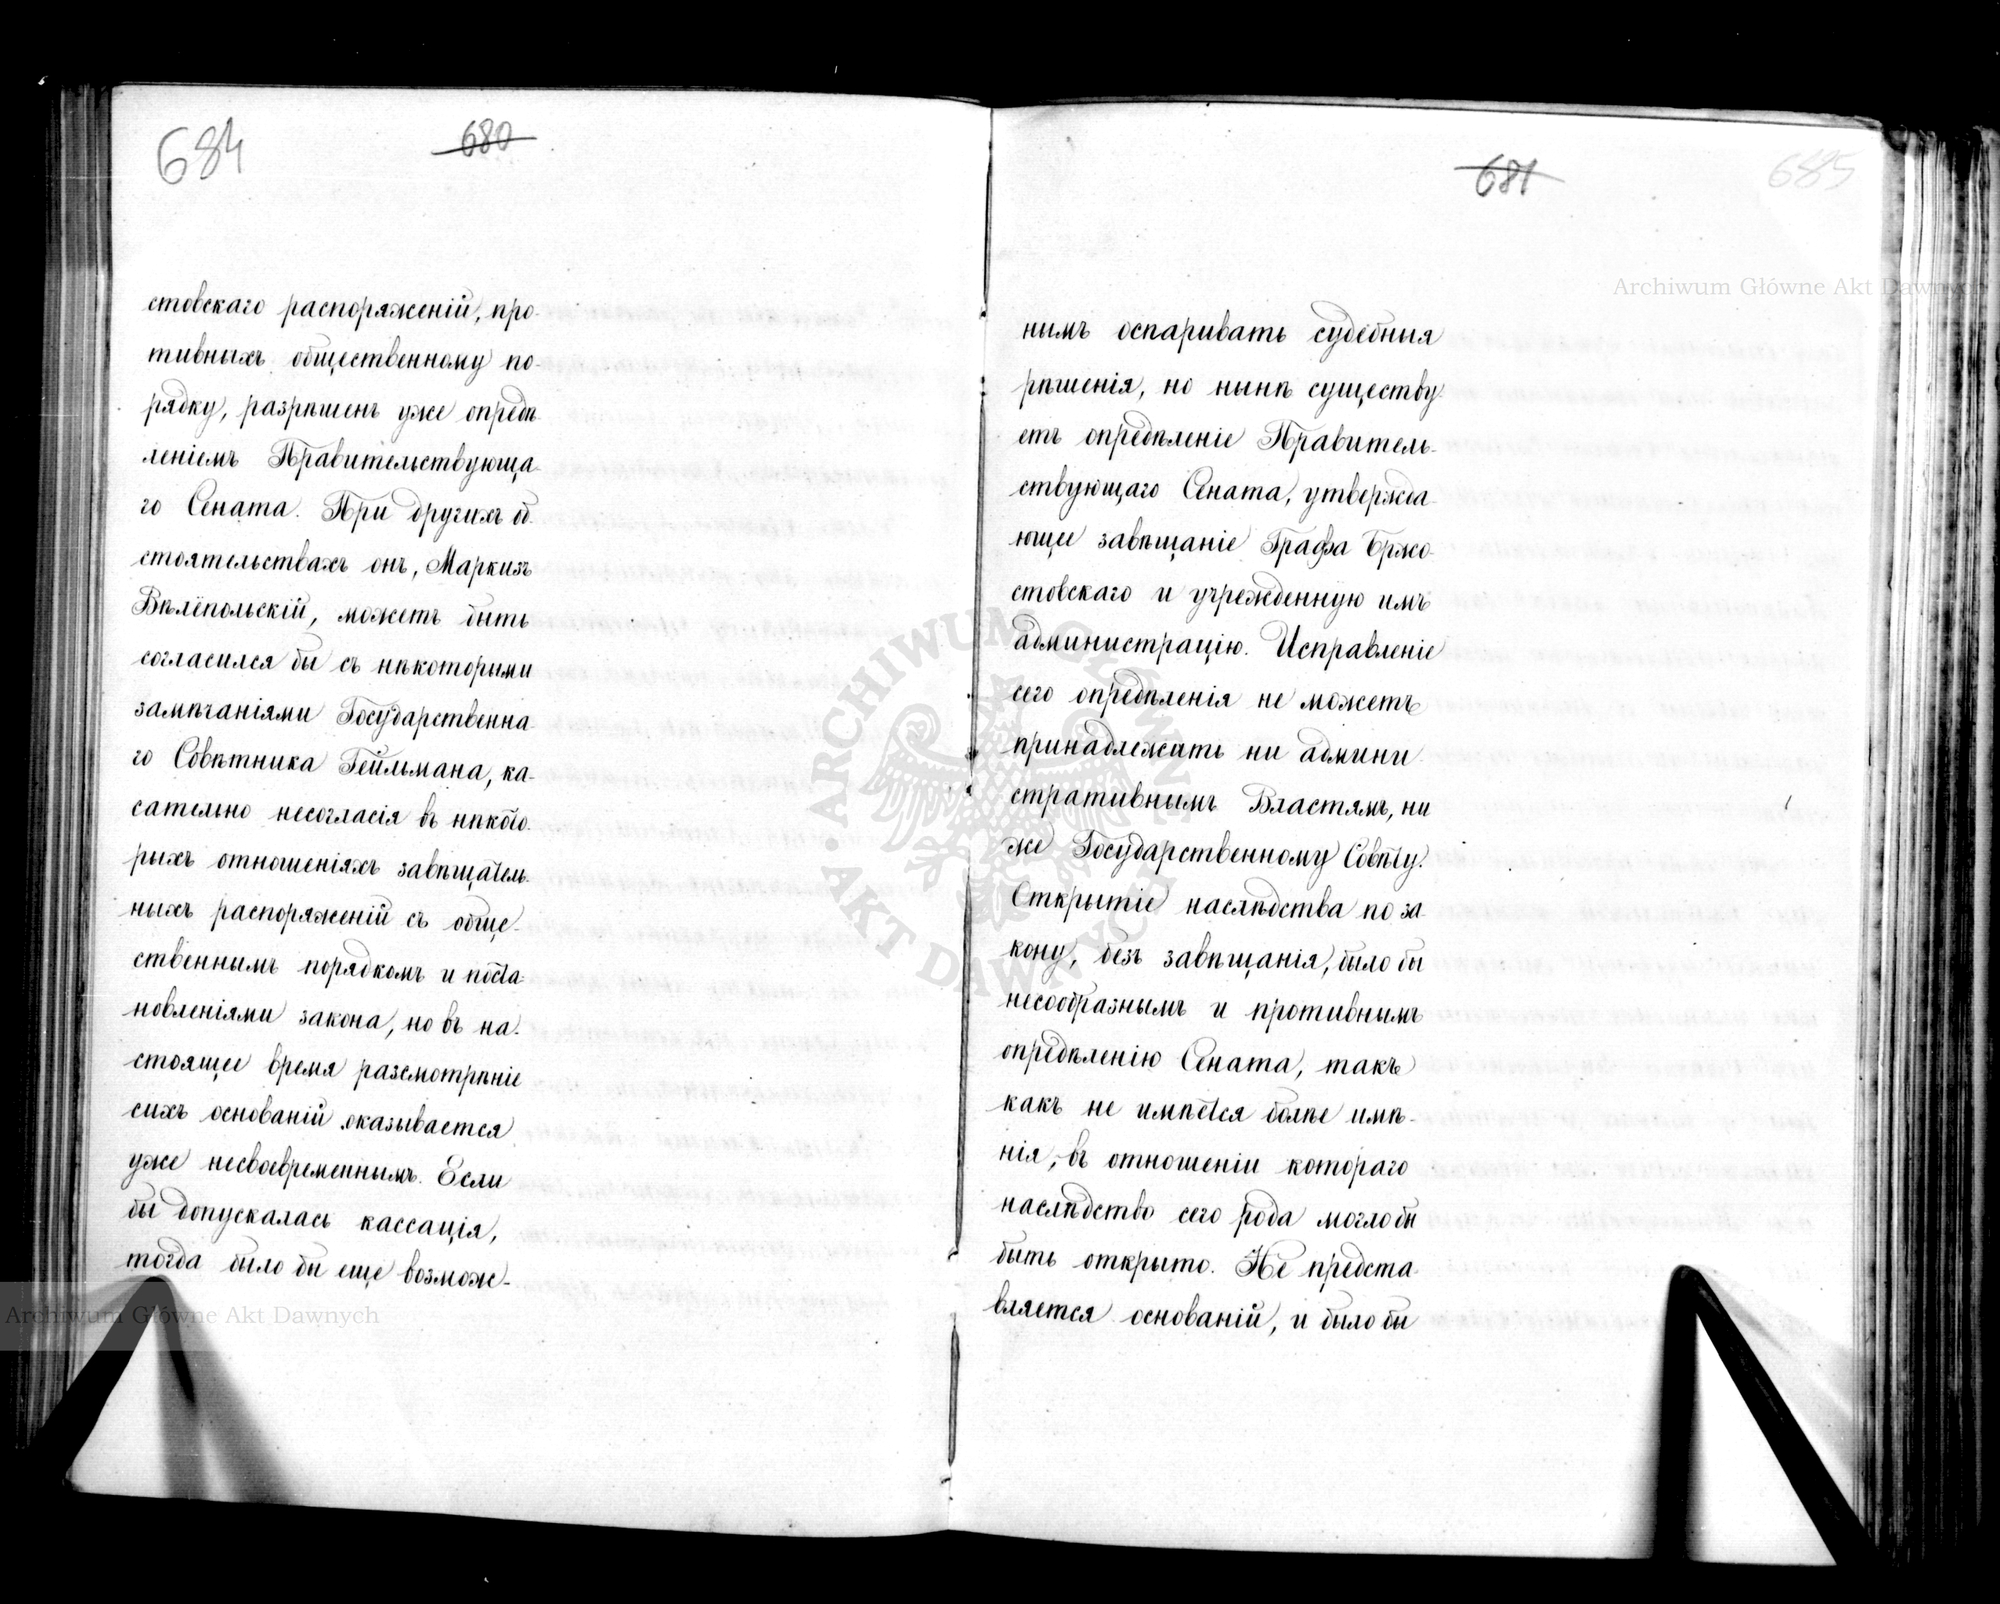 684
680
стовскаго распоряженій, про-
тивныхъ общественному по-
рядку, разрѣшенъ уже опредѣ-
леніемъ Правительствующа-
го Сената. При другихъ об-
стоятельствахъ онъ, Маркизъ
Вѣлёпольскій, можетъ быть
согласился бы съ нѣкоторыми
замѣчаніями Государственна-
го Совѣтника Гейльмана, ка-
сательно несогласія въ нѣкото-
рыхъ отношеніяхъ завѣщатель-
ныхъ распоряженій съ обще-
ственнымъ порядкомъ и поста-
новленіями закона, но въ на-
стоящее время разсмотрѣніе
сихъ основаній оказывается
уже несвоевременнымъ. Если
бы допускалась кассація,
тогда было бы еще возмож-
681
685
нымъ оспаривать судебныя
рѣшенія, но нынѣ существу-
етъ опредѣленіе Правитель-
ствующаго Сената, утвержда-
ющее завѣщаніе Графа Бржо-
стовскаго и учрежденную имъ
администрацію. Исправленіе
сего опредѣленія не можетъ
принадлежать ни админи-
стративнымъ Властямъ, ни
же Государственному Совѣту.
Открытіе наслѣдства по за-
кону, безъ завѣщанія, было бы
несообразнымъ и противнымъ
опредѣленію Сената, такъ
какъ не имѣется болѣе имѣ-
нія, въ отношеніи котораго
наслѣдство сего рода могло бы
быть открыто. Не предста-
вляется основаній, и было бы
Archiwum Główne Akt Dawnych
Archiwum Główne Akt Dawnych
ARCHIWUM GŁÓWNE AKT DAWNYCH